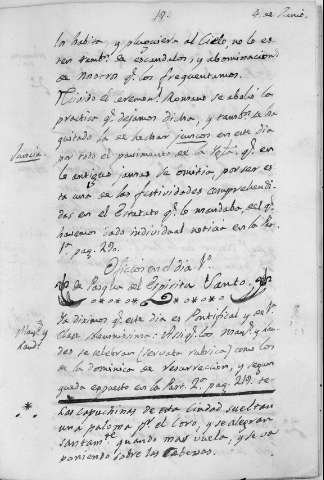 19.
4 de Junio.
la habita, y pluguiera al Cielo, no lo es-
tén tamb.n de escandalos, y abominacion.s
de Moros q.e los frequentamos.
Recivido el ceremon.l Romano se abolió la
practica q.e dejamos dicha, y tamb.n se ha
quitado la de hechar juncos en este dia
Juncia.
por todo el pavimento de la Ygl.a, q.e en
lo antiguo jamas se omitia, por ser es-
ta una de las festividades comprehendi-
das en el Estatuto q.e lo mandaba, del q.e
havemos dado individual noticia en la Par.
1.a pag. 290.
Oficios en el dia 1.o
de Pasqua del Espiritu Santo.
Ya diximos q.e este dia es Pontifical y de 1.a
Clase Asi q.e los Mayt.s y Lau-
Mayt.s y
Laud.s
des se celebran (servata rubrica) como los
de la dominica de resurreccion, y segun
queda expuesto en la Part. 2.a pag. 219.
*
Las capuchinas de esta Ciudad sueltan
una paloma p.r el Coro, y se alegran
santam.te quando mas vuela, y se va
poniendo sobre las cabezas.